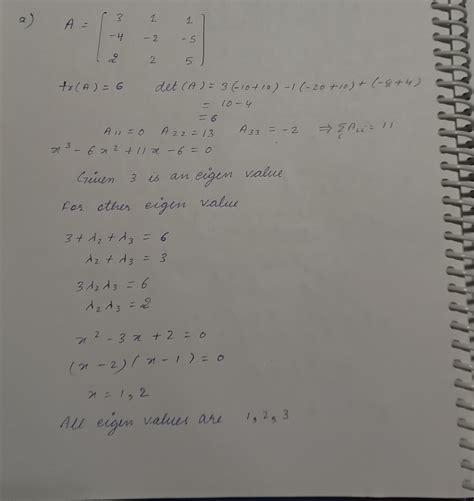 a) A = [ 3 1 1
-4 -2 -5
2 2 5 ]
tr(A) = 6 det(A) = 3(-10+10) -1(-20+10) + (-8+4)
= 10-4
= 6
A₁₁ = 0 A₂₂ = 13 A₃₃ = -2 ⇒ Σᵢ Aᵢᵢ = 11
x³ - 6x² + 11x - 6 = 0
Given 3 is an eigen value
For other eigen value
3 + λ₂ + λ₃ = 6
λ₂ + λ₃ = 3
3λ₂λ₃ = 6
λ₂λ₃ = 2
x² - 3x + 2 = 0
(x-2)(x-1) = 0
x = 1, 2
All eigen values are 1, 2, 3